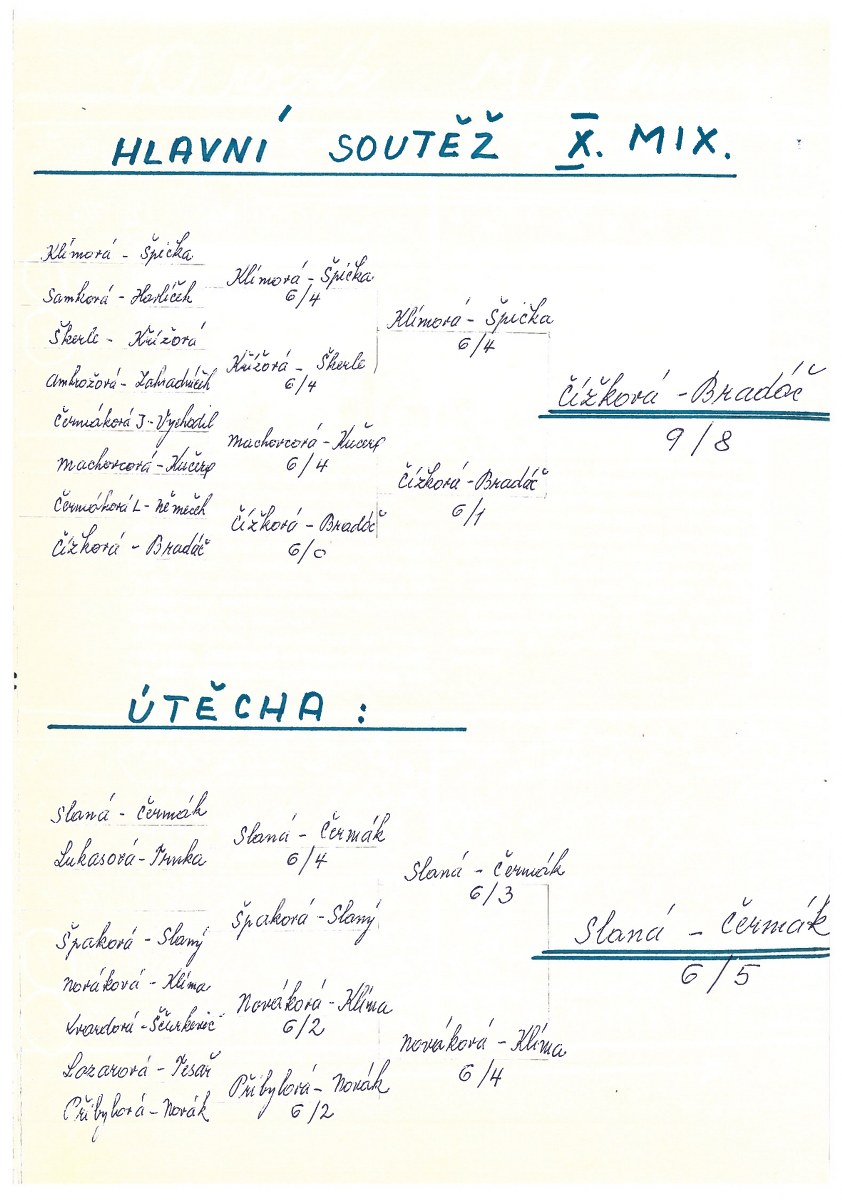 HLAVNÍ SOUTĚŽ X. MIX.
Klímová - Špička
Samková - Havlíček
Škerle - Křížová
Ambrožová - Zahradníček
Čermáková J - Vychodil
Machovcová - Kučera
Čermáková L - Němeček
Čížková - Bradáč
Klímová - Špička
6/4
Křížová - Škerle
6/4
Machovcová - Kučera
6/4
Čížková - Bradáč
6/0
Klímová - Špička
6/4
Čížková - Bradáč
6/1
Čížková - Bradáč
9/8
ÚTĚCHA :
Slaná - Čermák
Lukasová - Trnka
Špaková - Slaný
Nováková - Klíma
Lazarová - Tesař
Přibylová - Novák
Slaná - Čermák
6/4
Špaková - Slaný
Nováková - Klíma
6/2
Přibylová - Novák
6/2
Slaná - Čermák
6/3
Nováková - Klíma
6/4
Slaná - Čermák
6/5